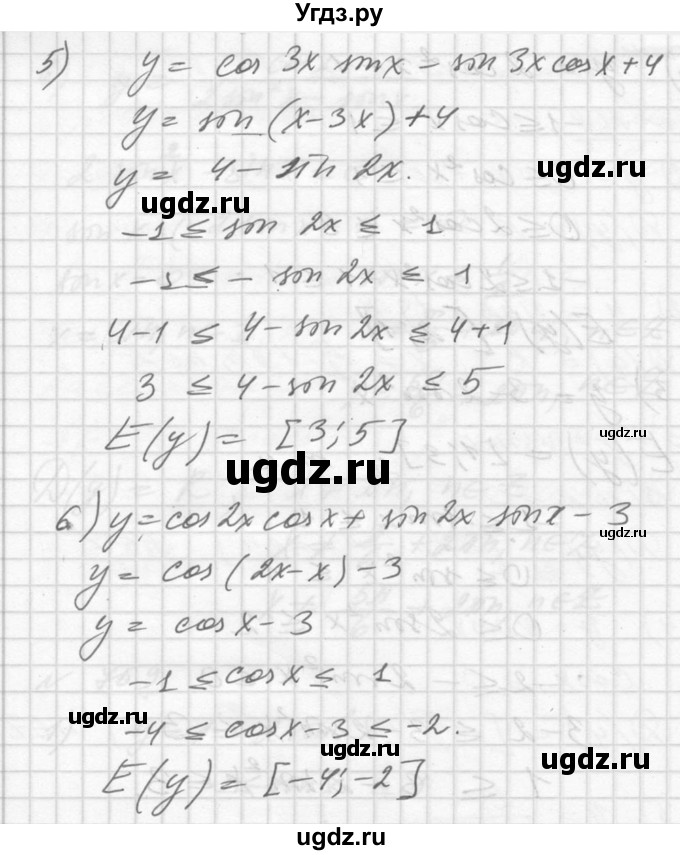 Угдз.ру
5) y = cos 3x sin x - sin 3x cos x + 4
y = sin (x - 3x) + 4
y = 4 - sin 2x.
ugdz.ru
ugdz.ru
-1 ≤ sin 2x ≤ 1
-1 ≤ - sin 2x ≤ 1
ugdz.ru
4-1 ≤ 4 - sin 2x ≤ 4+1
3 ≤ 4 - sin 2x ≤ 5
E(y) = [3; 5]
ugdz.ru
ugdz.ru
6) y = cos 2x cos x + sin 2x sin x - 3
ugdz.ru
y = cos (2x - x) - 3
y = cos x - 3
-1 ≤ cos x ≤ 1
ugdz.ru
-4 ≤ cos x - 3 ≤ -2.
ugdz.ru
ugdz.ru
E(y) = [-4; -2]
ugdz.ru